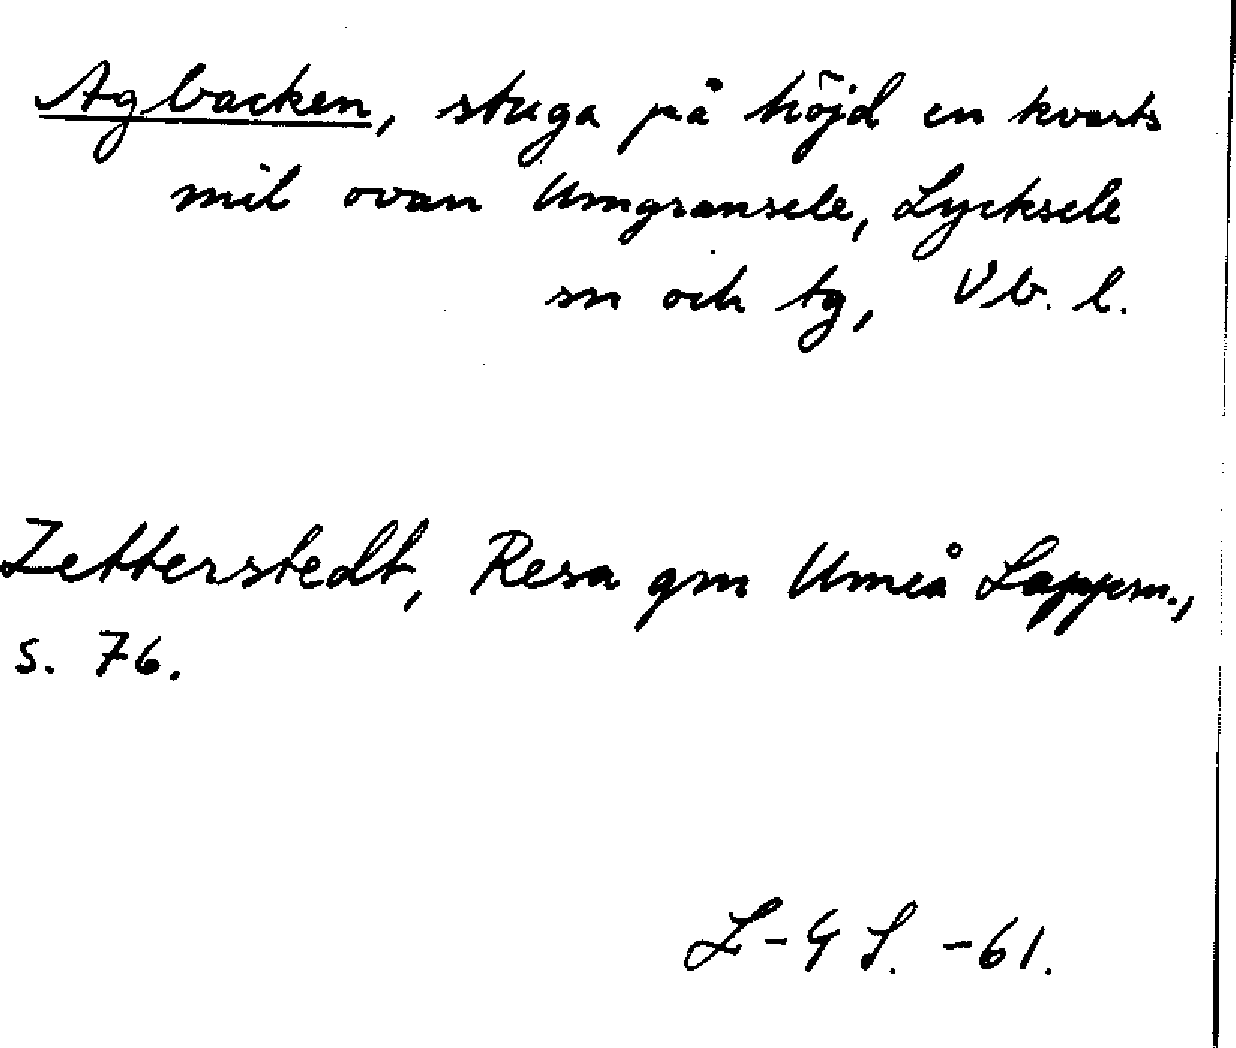 Agbacken, stuga på höjd en kvarts
mil ovan Umgransele, Lycksele
sn och tg, Vb. l.
Zetterstedt, Resa gm Umeå Lappm.,
s. 76.
L-G S. -61.